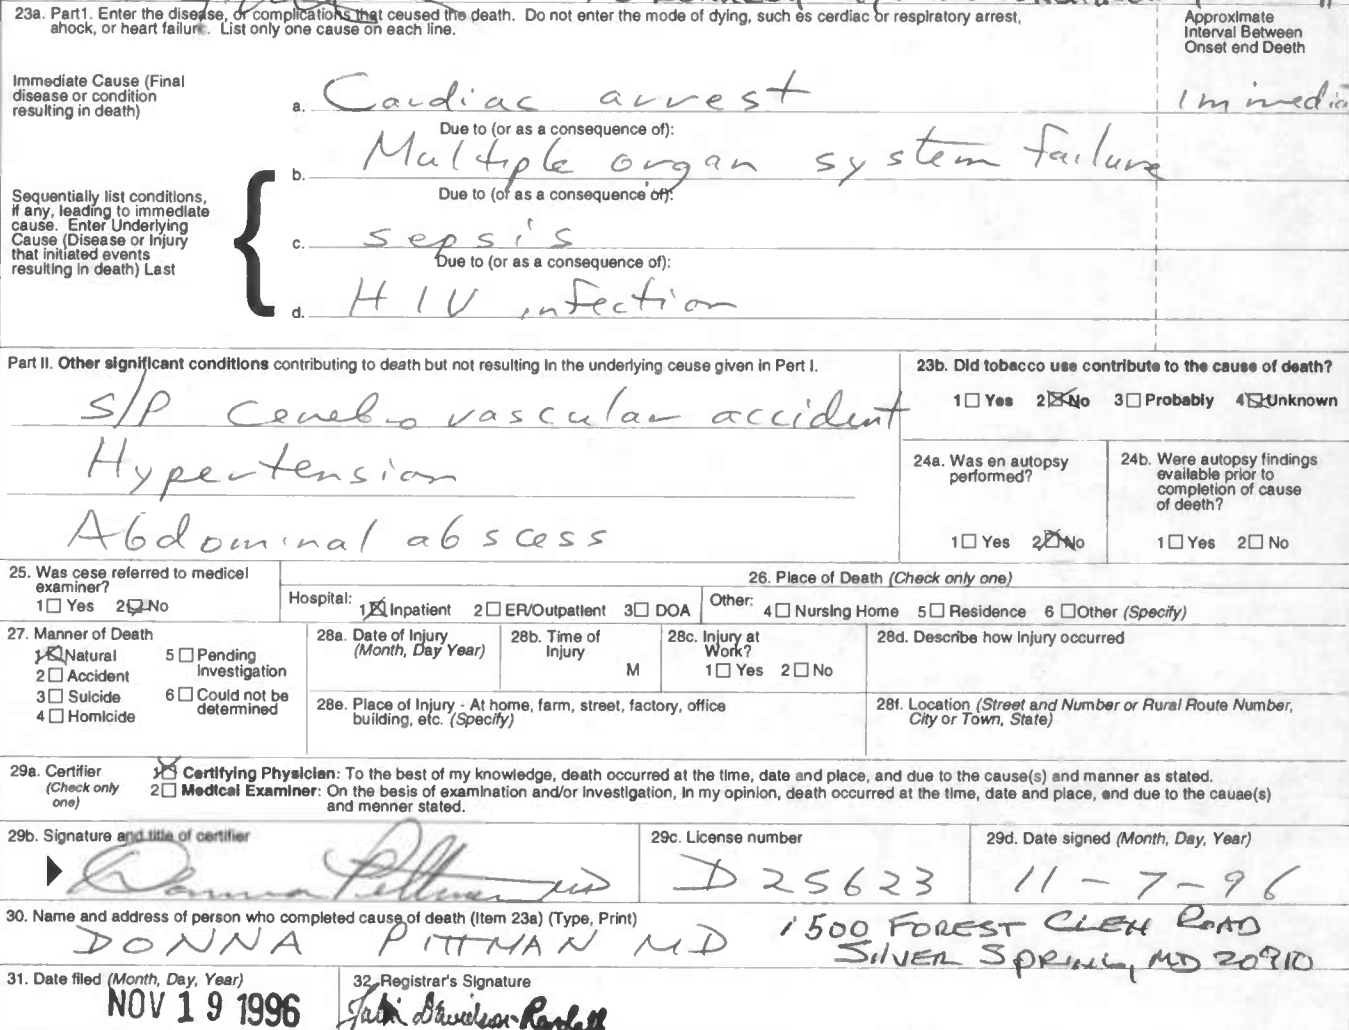 23a. Part1. Enter the disease, or complications that ceused the death. Do not enter the mode of dying, such es cerdiac or respiratory arrest,
ahock, or heart failure. List only one cause on each line.
Approximate
Interval Between
Onset end Deeth
Immediate Cause (Final
disease or condition
resulting in death)
a. Cardiac arrest
Immedia
Due to (or as a consequence of):
b. Multiple organ system failure
Due to (or as a consequence of):
Sequentially list conditions,
if any, leading to immediate
cause. Enter Underlying
Cause (Disease or Injury
that initiated events
resulting in death) Last
c. sepsis
Due to (or as a consequence of):
d. HIV infection
Part II. Other significant conditions contributing to death but not resulting in the underlying ceuse given in Pert I.
S/P Cerebrovascular accident
Hypertension
Abdominal abscess
23b. Did tobacco use contribute to the cause of death?
1☐ Yes 2☒ No 3☐ Probably 4☒ Unknown
24a. Was en autopsy
performed?
1☐ Yes 2☒ No
24b. Were autopsy findings
eveilable prior to
completion of cause
of deeth?
1☐ Yes 2☐ No
25. Was cese referred to medicel
examiner?
1☐ Yes 2☒ No
26. Place of Death (Check only one)
Hospital: 1☒ Inpatient 2☐ ER/Outpatlent 3☐ DOA Other: 4☐ Nursing Home 5☐ Residence 6 ☐Other (Specify)
27. Manner of Death
1☒ Natural
2☐ Accident
3☐ Suicide
4☐ Homicide
5☐ Pending
Investigation
6☐ Could not be
determined
28a. Date of Injury
(Month, Day Year)
28b. Time of
Injury
M
28c. Injury at
Work?
1☐ Yes 2☐ No
28d. Describe how Injury occurred
28e. Place of Injury - At home, farm, street, factory, office
building, etc. (Specify)
28f. Location (Street and Number or Rural Route Number,
City or Town, State)
29a. Certifier
(Check only
one)
1☒ Certifying Physician: To the best of my knowledge, death occurred at the time, date and place, and due to the cause(s) and manner as stated.
2☐ Medical Examiner: On the besis of examination and/or investigation, in my opinion, death occurred at the time, date and place, end due to the cauae(s)
and menner stated.
29b. Signature and title of certifier
Donna Pittman MD
29c. License number
D25623
29d. Date signed (Month, Day, Year)
11-7-96
30. Name and address of person who completed cause of death (Item 23a) (Type, Print)
DONNA PITTMAN MD
1500 FOREST GLEN ROAD
SILVER SPRING, MD 20910
31. Date filed (Month, Day, Year)
NOV 19 1996
32. Registrar's Signature